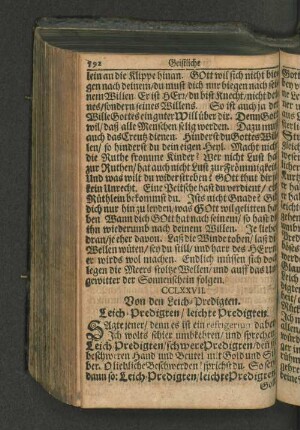 592 Geistliche
lein an die Klippe hinan. GOtt wil sich nicht bie
gen nach deinem/ du must dich nur biegen nach sei-
nem Willen Er ist HErr/ du bist Knecht/ nicht dei
nes/ sondern seines Willens. So ist auch ja der
Wille Gottes ein guter Will über dir. Denn Gott
will/ daß alle Menschen selig werden. Dazu muß
auch das Creutz dienen. Hinderst du Gottes Wil
len/ so hinderst du dein eigen Heyl. Macht nicht
die Ruthe fromme Kinder? Wer nicht Lust hat
zur Ruthen/ hat auch nicht Lust zur Frömmigkeit
Und was wilt du widerstreben? GOtt thut dir
kein Unrecht. Eine Peitsche hast du verdient/ ein
Rüthlein bekommst du. Ists nicht Gnade? Gib
dich nur hin zu leiden/ was GOtt wil gelitten ha-
ben Wann dich GOtt hat nach seinem/ so hast du
ihn wiederumb nach deinem Willen. Je lieber
dran/ je eher davon. Laß die Winde toben/ laß die
Wellen wüten/ sey du still/ und harr des HErrn
er wirds wol machen. Endlich müssen sich doch
legen die Meers stoltze Wellen/ und auff das Un-
gewitter der Sonnenschein folgen.
CCLXXVII.
Von den Leich-Predigten.
Leich-Predigten/ leichte Predigten.
SAgte jener/ denn es ist ein refrigerium dabey
Ich wolts schier umbkehren/ und sprechen:
Leich-Predigten/ schwere Predigten/ denn sie
beschweren Hand und Beutel mit Gold und Sil-
ber. O liebliche Beschwerden/ sprichst du So seyn
dann so: Leich-Predigten/ leichte Predigten
Gott